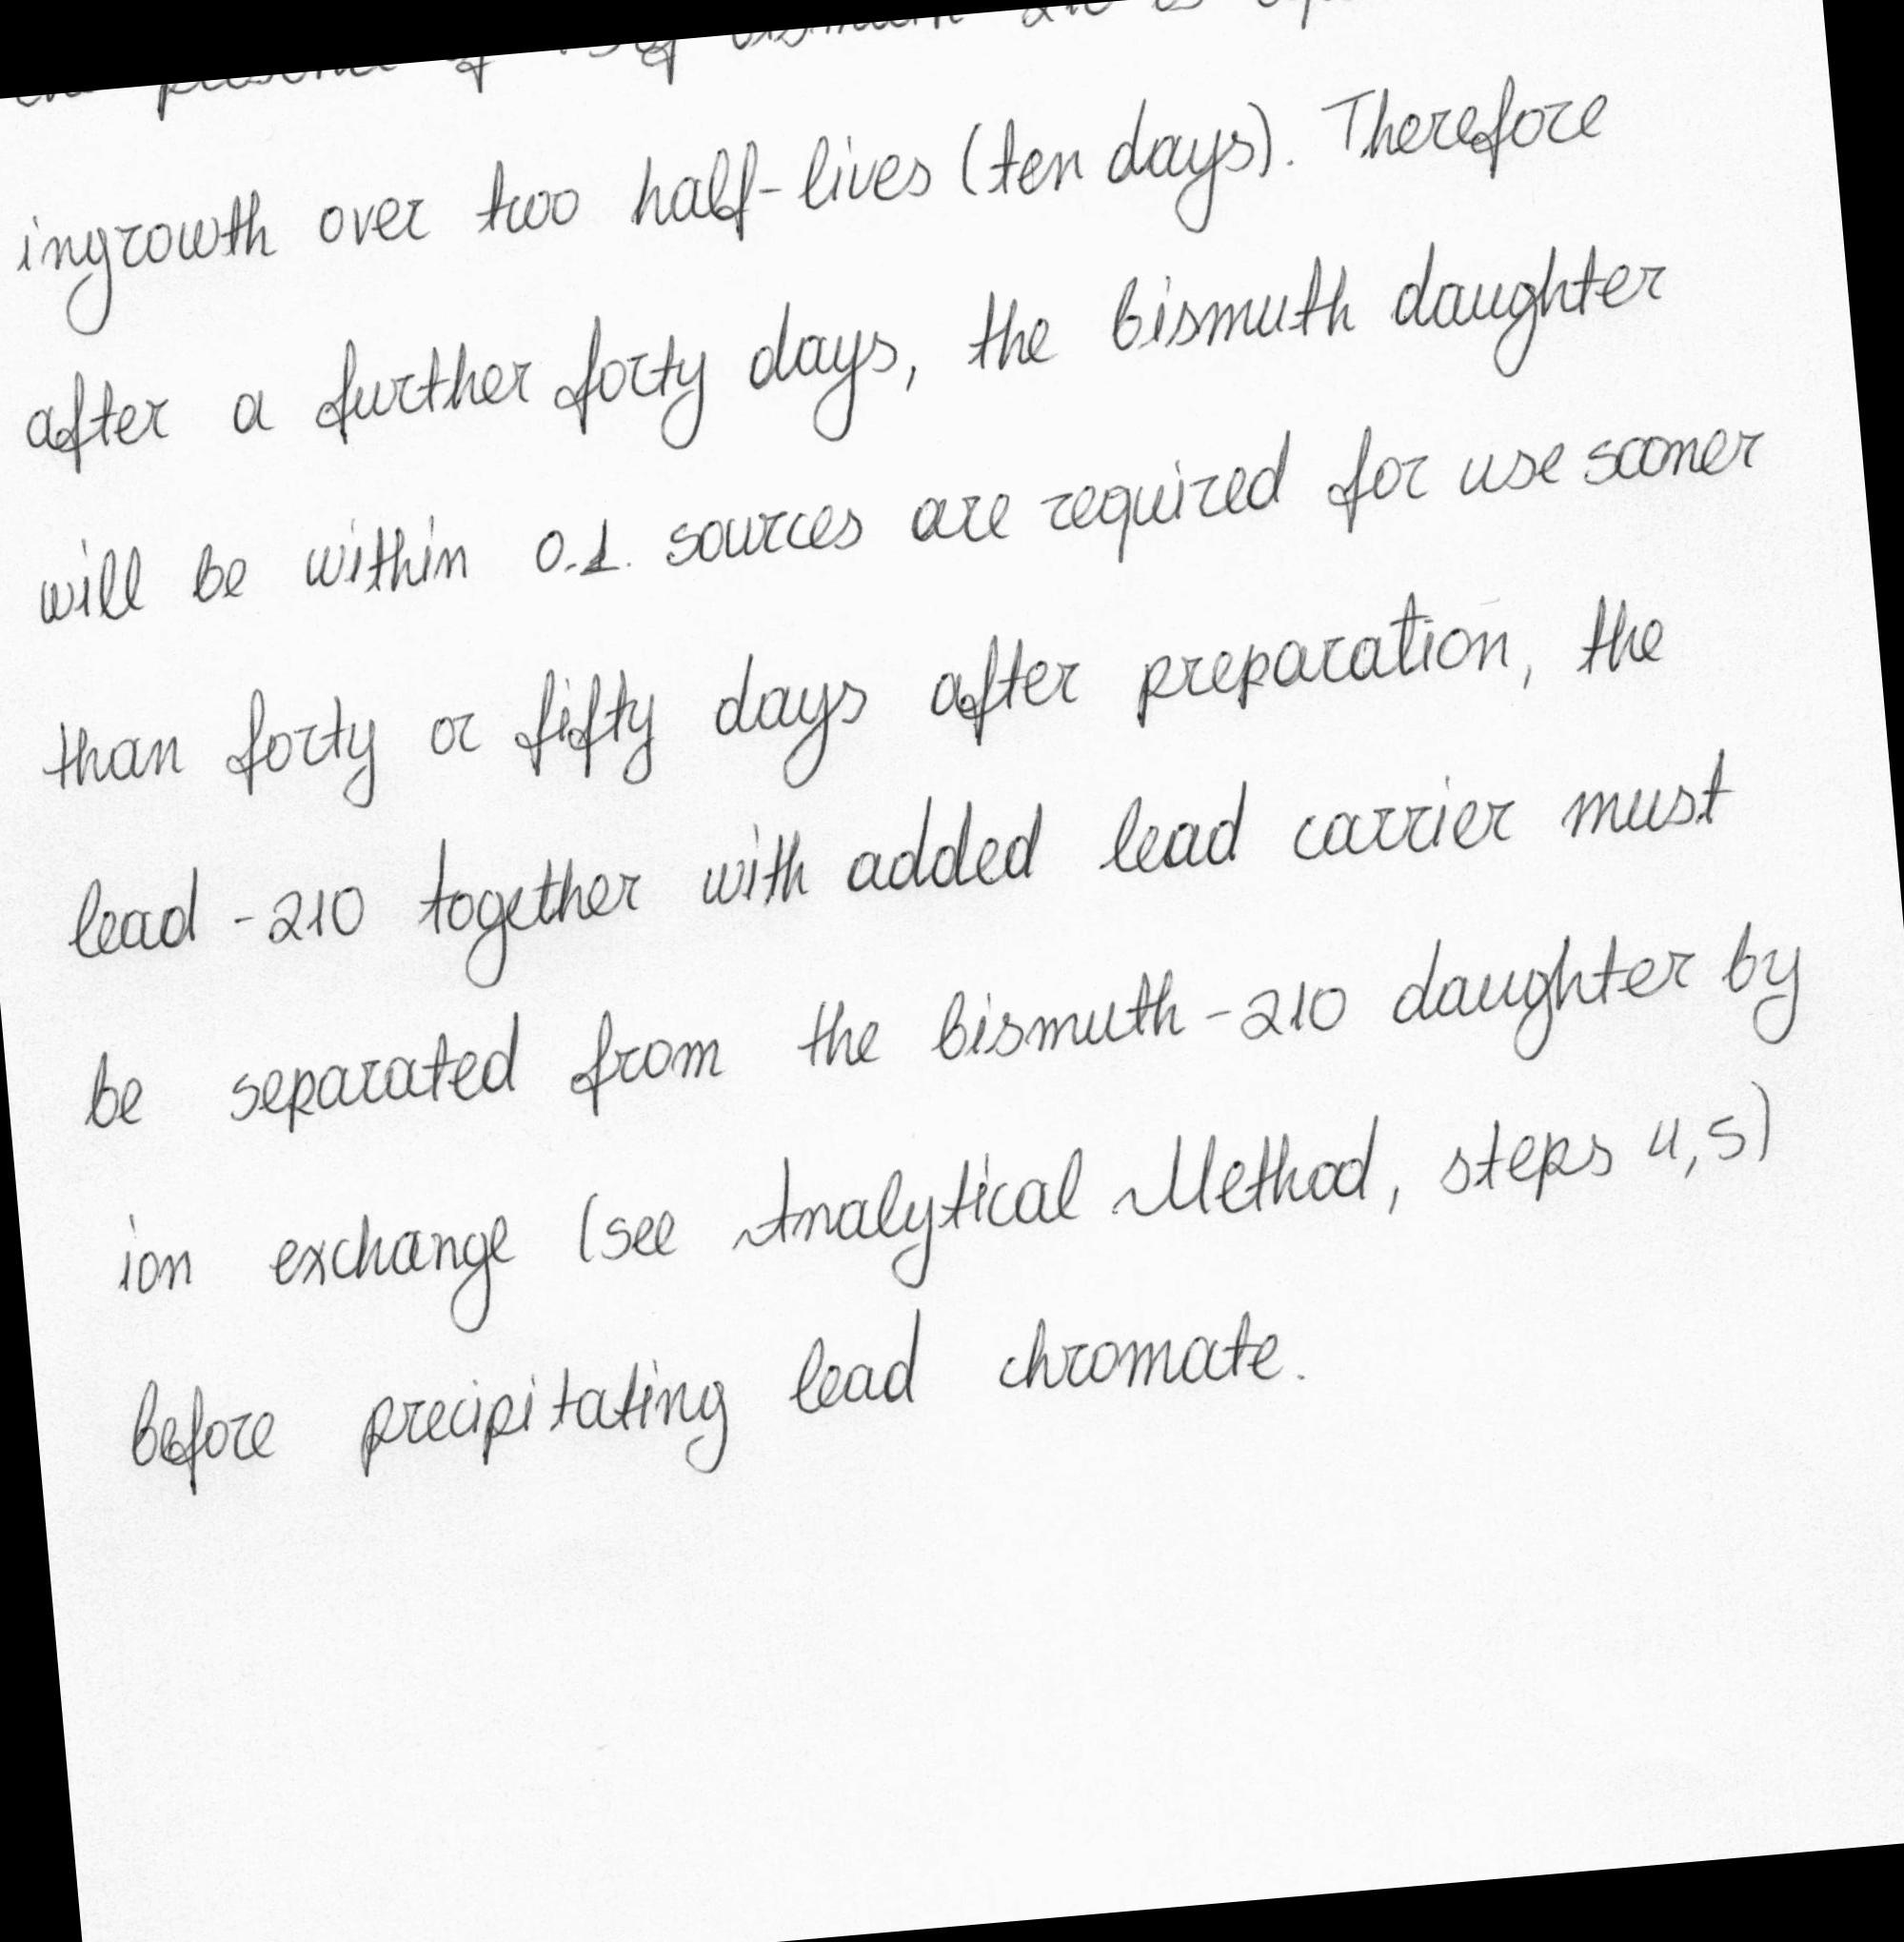 the presence of of bismuth 210 is
ingrowth over two half-lives (ten days). Therefore
after a further forty days, the bismuth daughter
will be within 0.1. sources are required for use sooner
than forty or fifty days after preparation, the
lead -210 together with added lead carrier must
be separated from the bismuth-210 daughter by
ion exchange (see Analytical Method, steps 4,5)
before precipitating lead chromate.